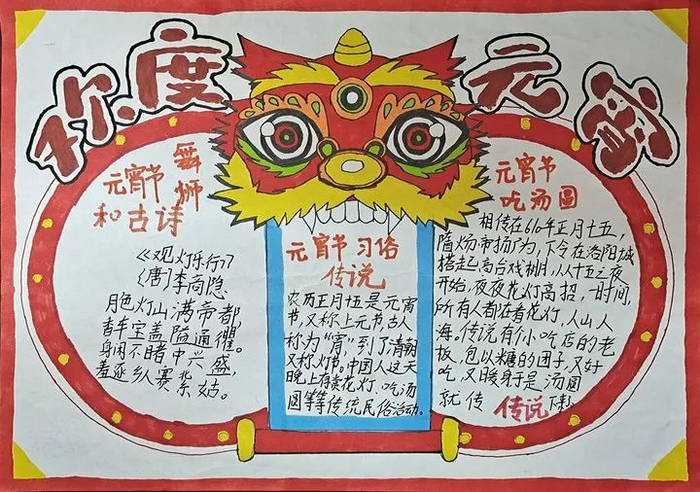 欢度元宵
元宵节
舞狮
和古诗
《观灯乐行》
(唐)李商隐
月色灯山满帝都,
香车宝盖隘通衢。
身闲不睹中兴盛,
羞逐乡人赛紫姑。
元宵节习俗
传说
农历正月十五是元宵
节,又称上元节,古人
称为“宵”到了清朝
又称灯节。中国人这天
晚上有看花灯,吃汤
圆等等传统民俗活动。
元宵节
吃汤圆
相传在610年正月十五,
隋炀帝扬广为,下令在洛阳城
搭起高台戏棚,从十五之夜
开始,夜夜花灯高招,一时间,
所有人都在看花灯,人山人
海。传说有个小吃店的老
板,包以糖的团子,又好
吃,又暖身于是汤圆
就传 传说